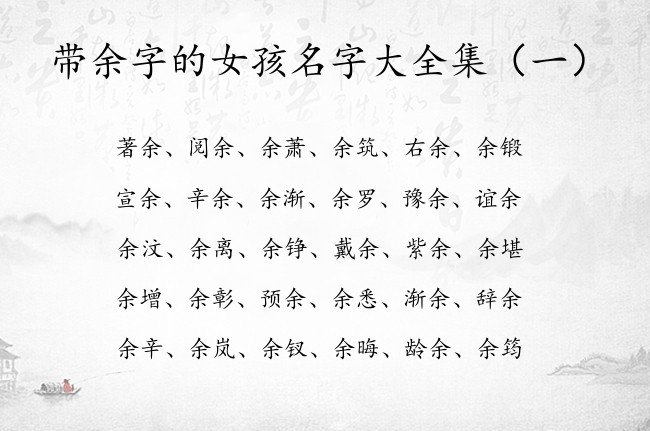 带余字的女孩名字大全集（一）
著余、阅余、余萧、余筑、右余、余锻
宣余、辛余、余渐、余罗、豫余、谊余
余汶、余离、余铮、戴余、紫余、余堪
余增、余彰、预余、余悉、渐余、辞余
余辛、余岚、余钗、余晦、龄余、余筠